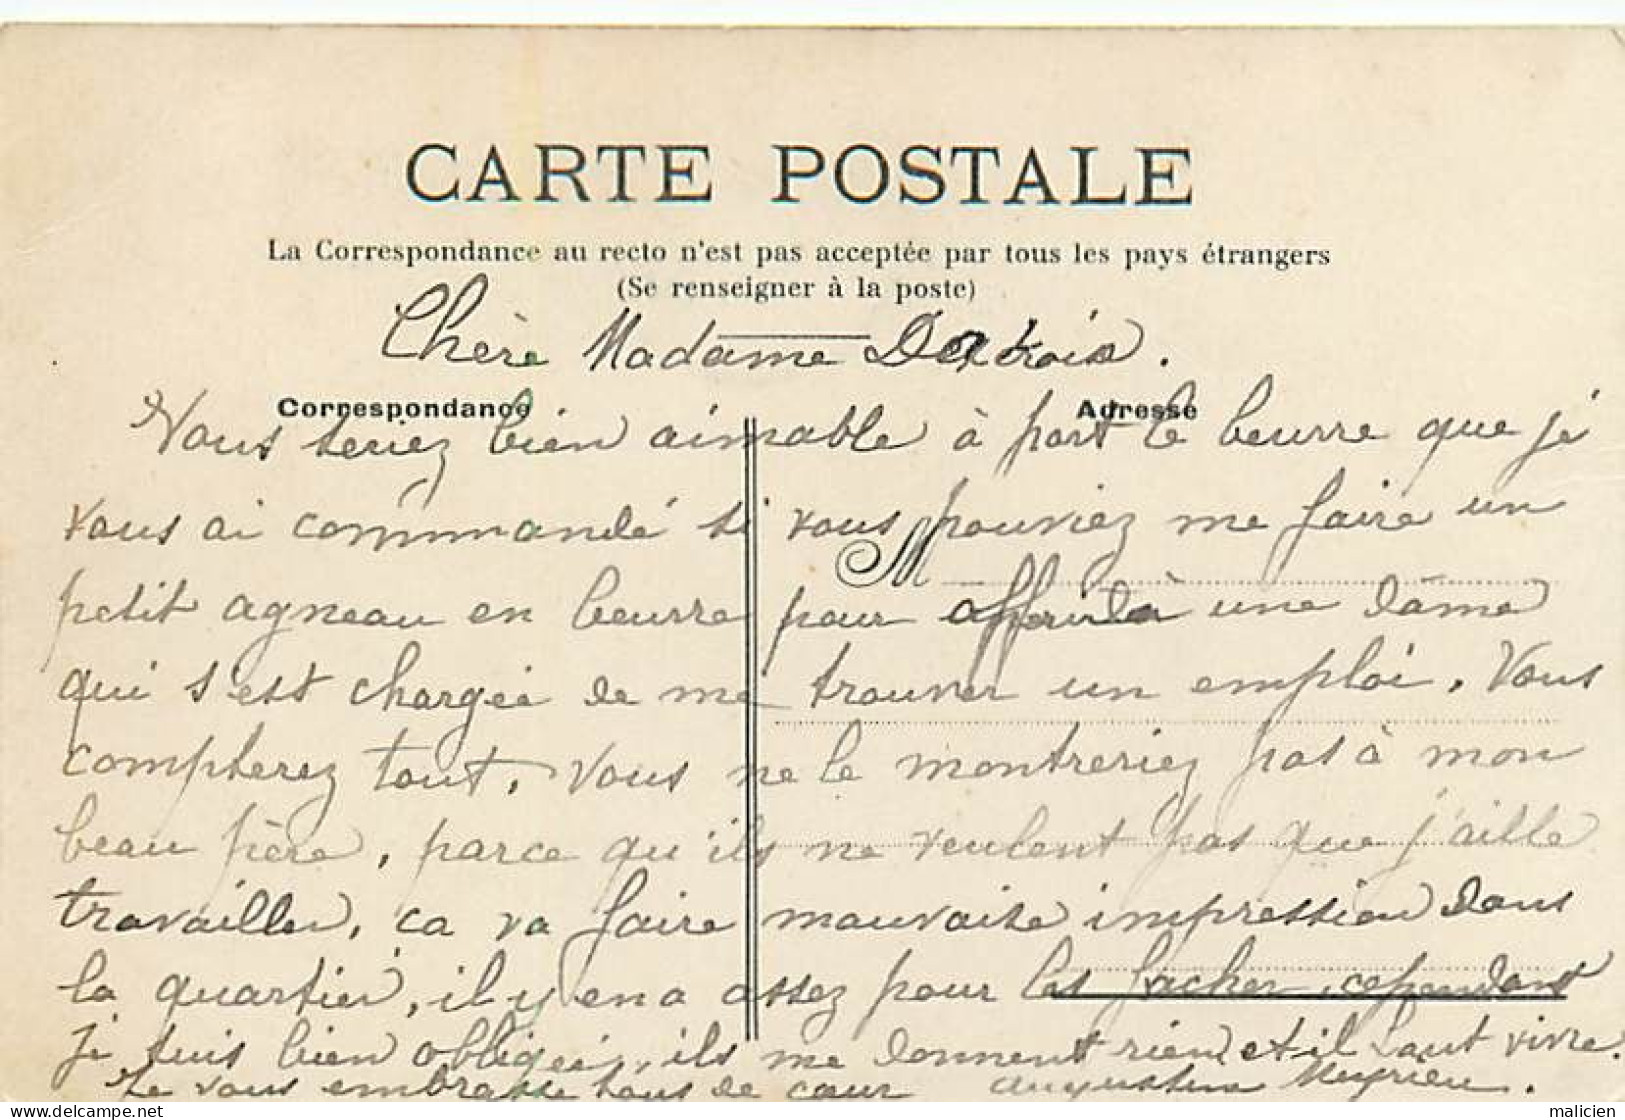 CARTE POSTALE
La Correspondance au recto n'est pas acceptée par tous les pays étrangers
(Se renseigner à la poste)
Chère Madame
Correspondance
Adresse
Vous seriez bien aimable à part le beurre que je
vous ai commandé si vous pouviez me faire un
M
petit agneau en beurre pour à une dâme
qui s'est chargée de me trouver un emploi. Vous
compterez tout. Vous ne le montreriez pas à mon
beau père, parce qu'ils ne veulent pas que j'aille
travailler, ça va faire mauvaise impression dans
le quartier, il y en a assez pour les facher, cependant
je suis bien obligée, ils me donnent rien et il faut vivre.
Je vous embrasse tous de cœur Augustine Meyrieu.
malicien